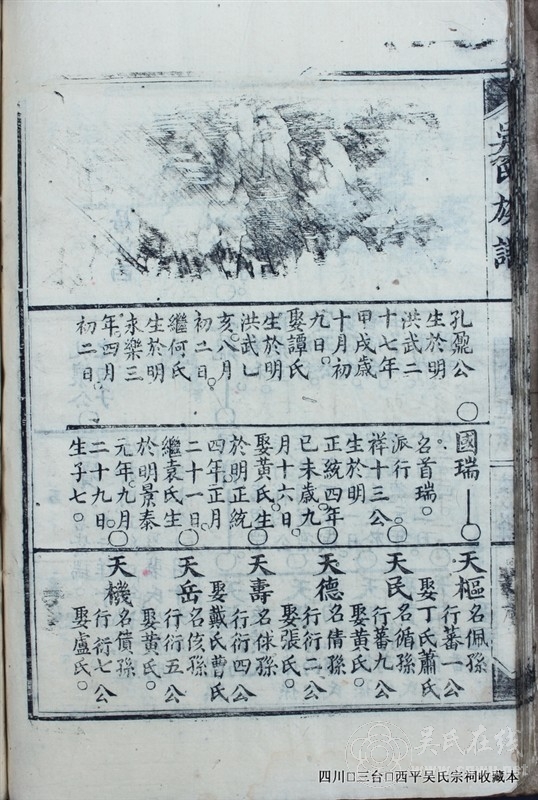 吳氏族譜
孔龗公
生於明
洪武二
十七年
甲戌歲
十月初
九日。
娶譚氏
生於明
洪武乙
亥八月
初二日。
繼何氏
生於明
永樂三
年四月
初二日。
○國瑞
名首瑞。
派行
祥十三公
生於明
正統四年
已未歲九
月十六日。
娶黃氏生
於明正統
四年正月
二十一日。
繼袁氏生
於明景泰
元年九月
二十九日。
生子七。
天樞名佩孫
行蕃一公
娶丁氏蕭氏
天民名循孫
行蕃九公
娶黃氏。
天德名倩孫
行衍二公
娶張氏。
天壽名俅孫
行衍四公
娶戴氏曹氏
天岳名侅孫
行衍五公
娶黃氏。
天機名僨孫
行衍七公
娶盧氏。
吴氏在线
四川□三台□西平吴氏宗祠收藏本